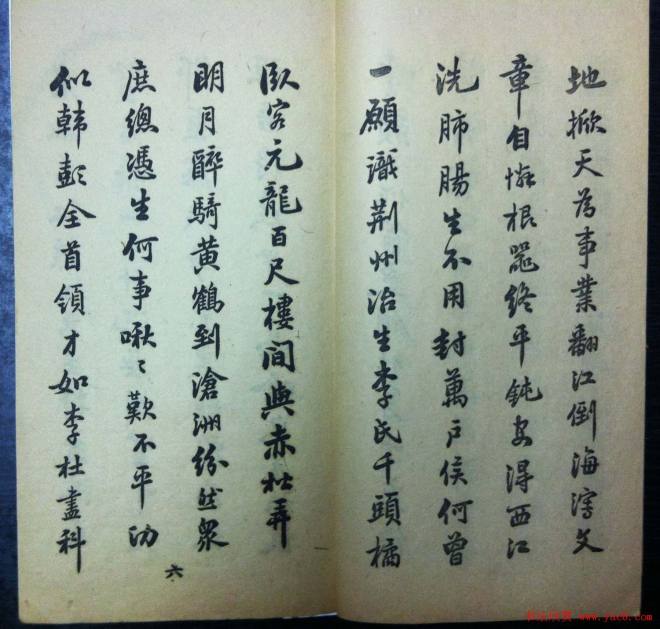 地掀天為事業翻江倒海瀉文
章自慚根器終平鈍安得西江
洗肺腸生不用封萬戶侯何曾
一願識荊州治生李氏千頭橘
臥客元龍百尺樓間與赤松弄
明月醉騎黃鶴到滄洲紛然眾
庶總憑生何事啾〻歎不平功
似韓彭全首領才如李杜盡科
六
书法欣赏 www.yac8.com